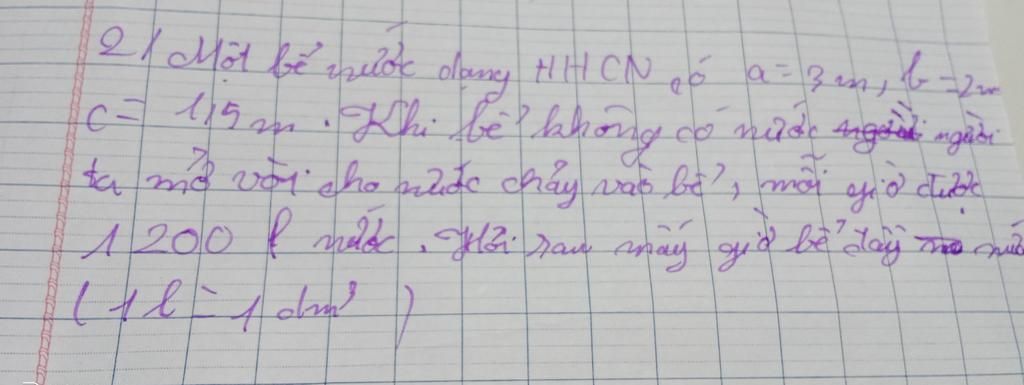 2/ Một bể nước dạng HHCN có a = 3 m, b = 2 m
c = 1,5 m. Khi bể không có nước người
ta mở vòi cho nước chảy vào bể, mỗi giờ được
1200 l nước. Hỏi sau mấy giờ bể đầy nước
(1 l = 1 dm³)